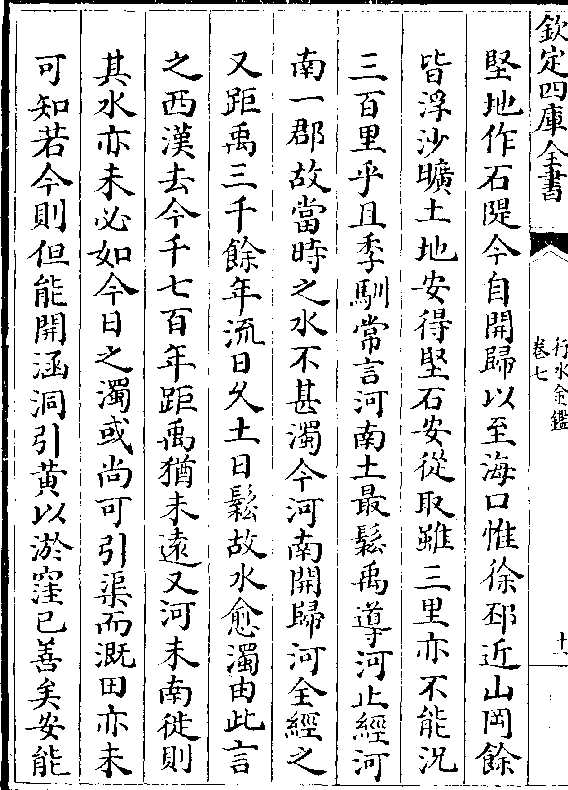 欽定四庫全書
行水金鑑
卷七
十一
堅地作石隄今自開歸以至海口惟徐邳近山岡餘
皆浮沙曠土地安得堅石安從取雖三里亦不能況
三百里乎且季馴常言河南土最鬆禹導河止經河
南一郡故當時之水不甚濁今河南開歸河全經之
又距禹三千餘年流日久土日鬆故水愈濁由此言
之西漢去今千七百年距禹猶未遠又河未南徙則
其水亦未必如今日之濁或尚可引渠而溉田亦未
可知若今則但能開涵洞引黄以淤窪已善矣安能